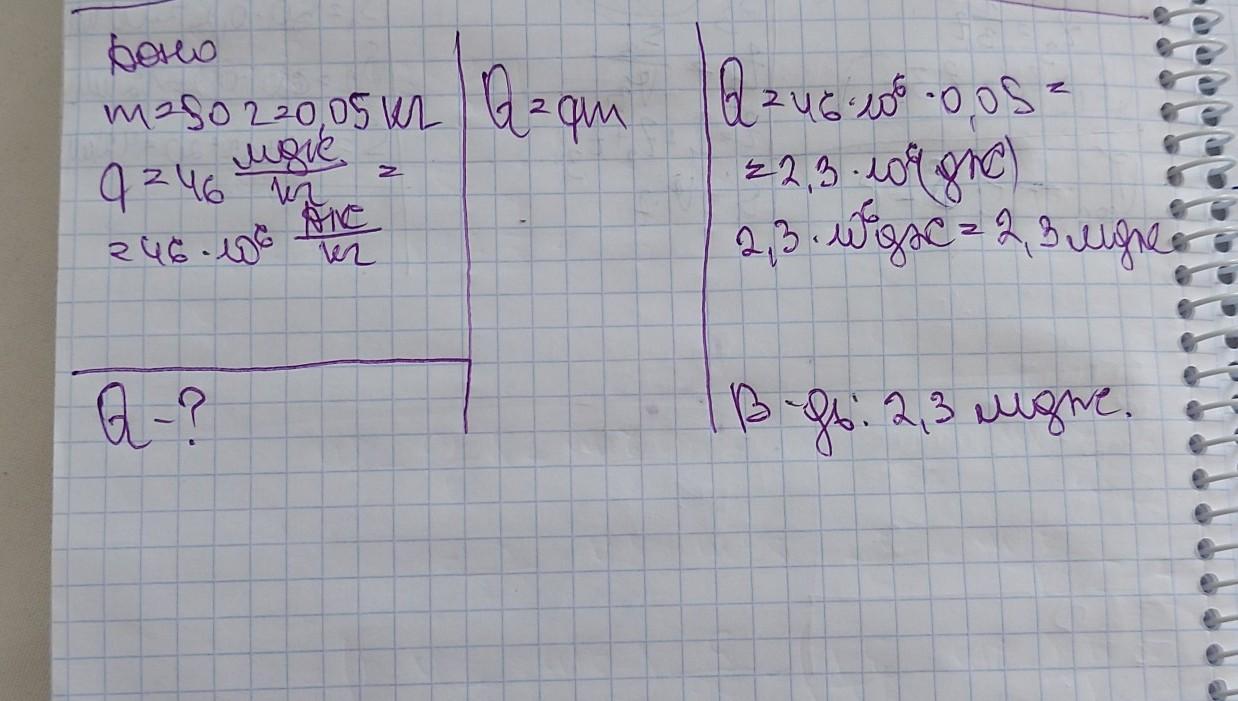 Дано
m=50г=0,05 кг
q=46 мдж/кг =
=46·10⁶ Дж/кг
Q-?
Q=qm
Q=46·10⁶·0,05=
=2,3·10⁶(дж)
2,3·10⁶дж=2,3 мдж
В-дь: 2,3 мдж.